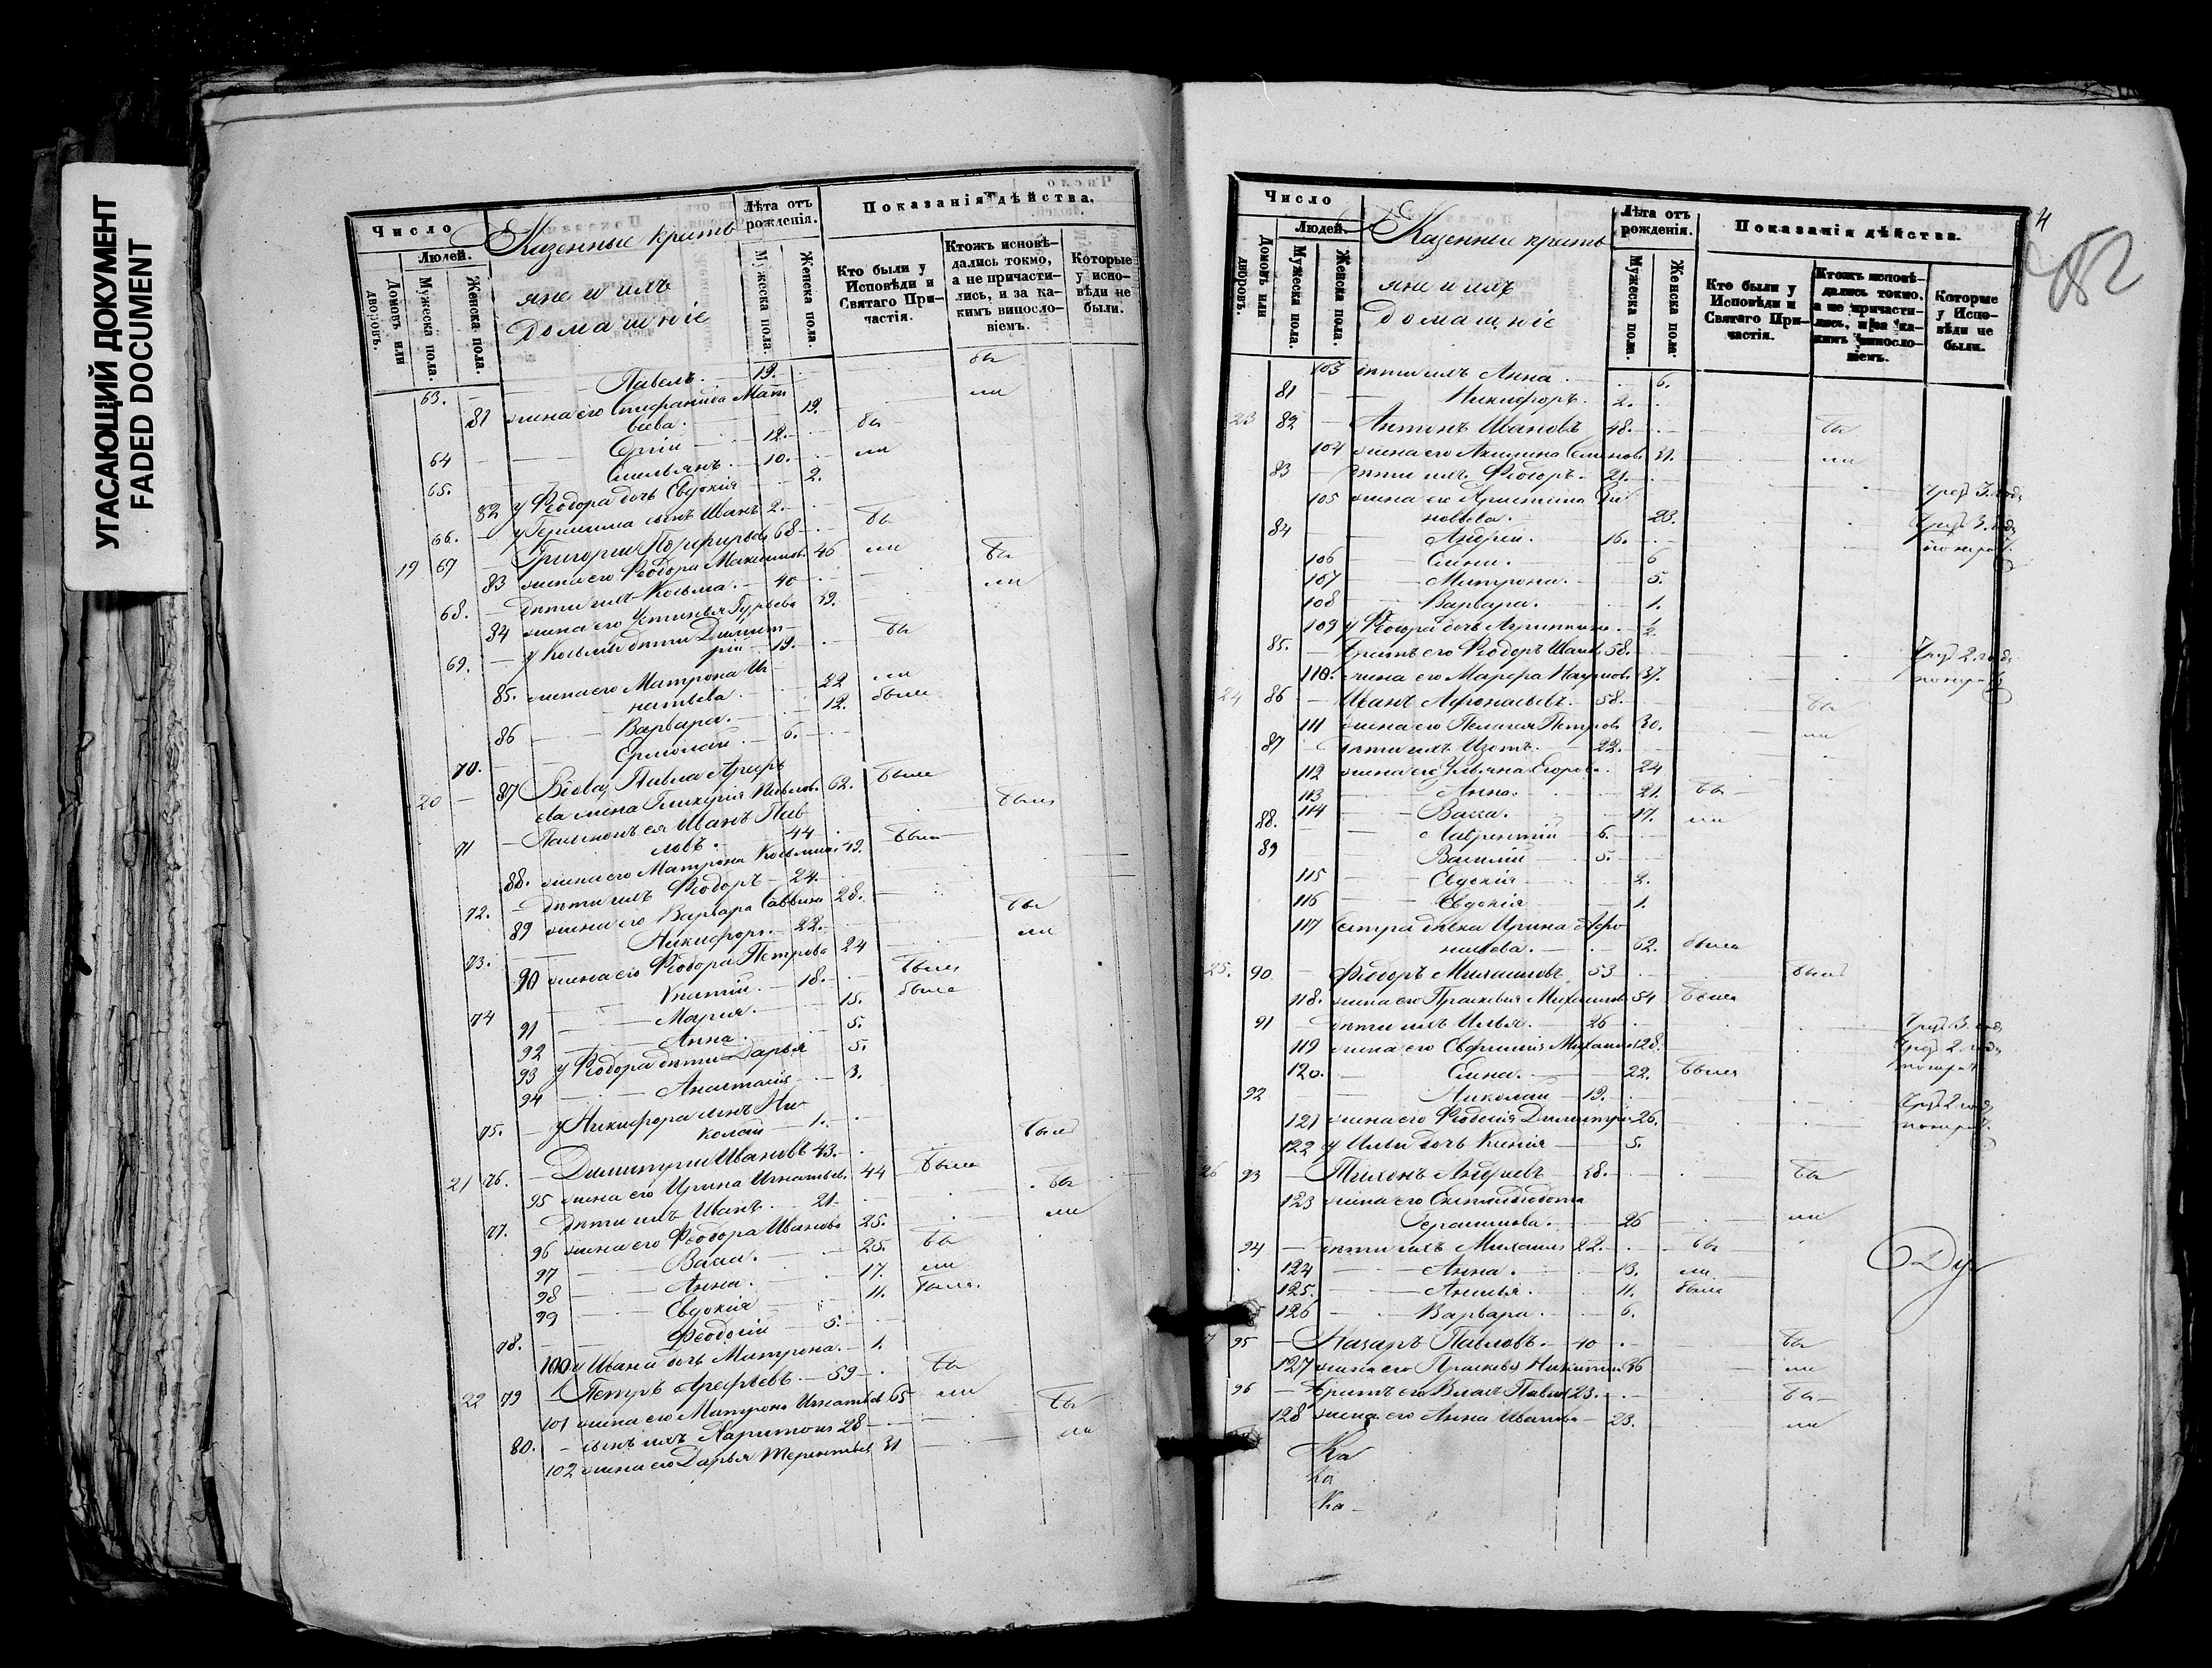 УГАСАЮЩИЙ ДОКУМЕНТ
FADED DOCUMENT
Число
Людей.
Домовъ или дворовъ.
Мужеска пола.
Женска пола.
Казенные кресть
яне и ихъ
домашніе
Лѣта отъ рожденія.
Мужеска пола.
Женска пола.
Показанія дѣйства.
Кто были у Исповѣди и Святаго При-частія.
Ктожъ исповѣ-дались токмо, а не причасти-лись, и за ка-кимъ виносло-віемъ.
Которые у испо-вѣди не были.
63. — Павелъ. 19. бы
81 жена его Стефанида Мат ли
вѣева. 19.
64 — Сргій 12. бы
65. — Емильянъ. 10. ли
82 у Ѳеодора дочь Евдокія 2.
66. — у Герасима сынъ Иванъ 2.
19 69 — Григорій Порфирьевъ 68 бы
83 жена его Ѳеодора Максимов. 46 ли бы
68. — дѣти ихъ Косьма. 40 ли
84 жена его Устинья Гурьева 39.
69. — у Косьмы дѣти Димит
рій 19. бы
85. жена его Матрона Иг
натьева 22 ли
86 — Варвара. 12. была
70. — Ермолай 6.
20 — 87 Вдова, Павла Ареѳь
ева жена Гликерія Павлов. 62. была
71 — Пасынокъ ея Иванъ Пав былъ
ловъ. 44
88. жена его Матрона Косьмин. 49. была
72. — дѣти ихъ Ѳеодоръ 24.
89 жена его Варвара Саввина 28. бы
73. — Никифоръ. 22. ли
90 жена его Ѳеодора Петрова 24
74 — Игнатій. 18. былъ
91 — Марія. 15. была
92 — Анна 5.
93 у Ѳеодора дѣти Дарья 5.
94 — Анастасія 3.
75. — у Никифора сынъ Ни
колай 1.
21 76. — Димитрій Ивановъ 43. былъ
95 жена его Ирина Игнатьев. 44 была
77. — дѣти ихъ Иванъ. 21. бы
96 жена его Ѳеодора Иванова 25. ли
97 — Васса. 25. бы
98 — Анна. 17. ли
99 — Евдокія 11. была.
78. — Ѳеодосій 5.
100 у Ивана дочь Матрона. 1.
22 79 — Петръ Ареѳьевъ. 59 бы
101 жена его Матрона Игнатьев 65 ли
80. — сынъ ихъ Харитонъ 28 бы
102 жена его Дарья Терентьев 31 ли
4
Число
Людей.
Домовъ или дворовъ.
Мужеска пола.
Женска пола.
Казенные кресть
яне и ихъ
домашніе
Лѣта отъ рожденія.
Мужеска пола.
Женска пола.
Показанія дѣйства.
Кто были у Исповѣди и Святаго При-частія.
Ктожъ исповѣ-дались токмо, а не причасти-лись, и за ка-кимъ виносло-віемъ.
Которые у Испо-вѣди не были.
103 дѣти ихъ Анна 6.
81 — Никифоръ. 2.
23 82 — Антонъ Ивановъ 48. бы
104 жена его Акилина Семенов. 51. ли
83 — дѣти ихъ Ѳеодоръ. 21.
105 жена его Христина Зи чрез 3. года
новьева. 23.
84 — Андрей. 16. чрез 3. года
106 — Елена. 6
107 — Матрона. 5.
108 — Варвара. 1.
109 у Ѳеодора дочь Агриппина. 1/2.
85. — братъ его Ѳеодоръ Иванов 58. чрез 2. года
110. жена его Марѳа Наумов. 37.
24 86 — Иванъ Аѳонасьевъ. 58. бы
111 жена его Пелагея Петрова 30. ли
87 — дѣти ихъ Изотъ. 22.
112 жена его Ульяна Егорова 24
113 — Анна. 21. бы
114 — Васса. 17. ли
88. — Лаврентій 6.
89 — Василій 5.
115 — Евдокія 2.
116 — Евдокія 1.
117 сестра дѣвка Ирина Аѳо
насьева. 62. была
25. 90 — Ѳеодоръ Михаиловъ 53 былъ
118. жена его Праскевія Михаилов. 54 была
91 — дѣти ихъ Илья. 26 чрез 3. года
119 жена его Евфимія Михаил. 28. чрез 2. года
120. — Елена. 22. была
92 — Николай 19. чрез 2. года
121 жена его Ѳеодосія Димитрі 26.
122 у Ильи дочь Ксенія 5.
26 93 — Тихонъ Андреевъ 38. бы
123 жена его
Герасимова. 26 ли
94 — дѣти ихъ Михаилъ 22. бы
124 — Анна. 13. ли
125. — Анисья. 11. была
126 — Варвара. 6.
Ду
95 — Назаръ Павловъ. 40 бы
127 жена его Праскевія Никитин 36 ли
96 — братъ его Власъ Павлов 23. бы
128 жена его Анна Иванова 23. ли
Ка
ка
Ка